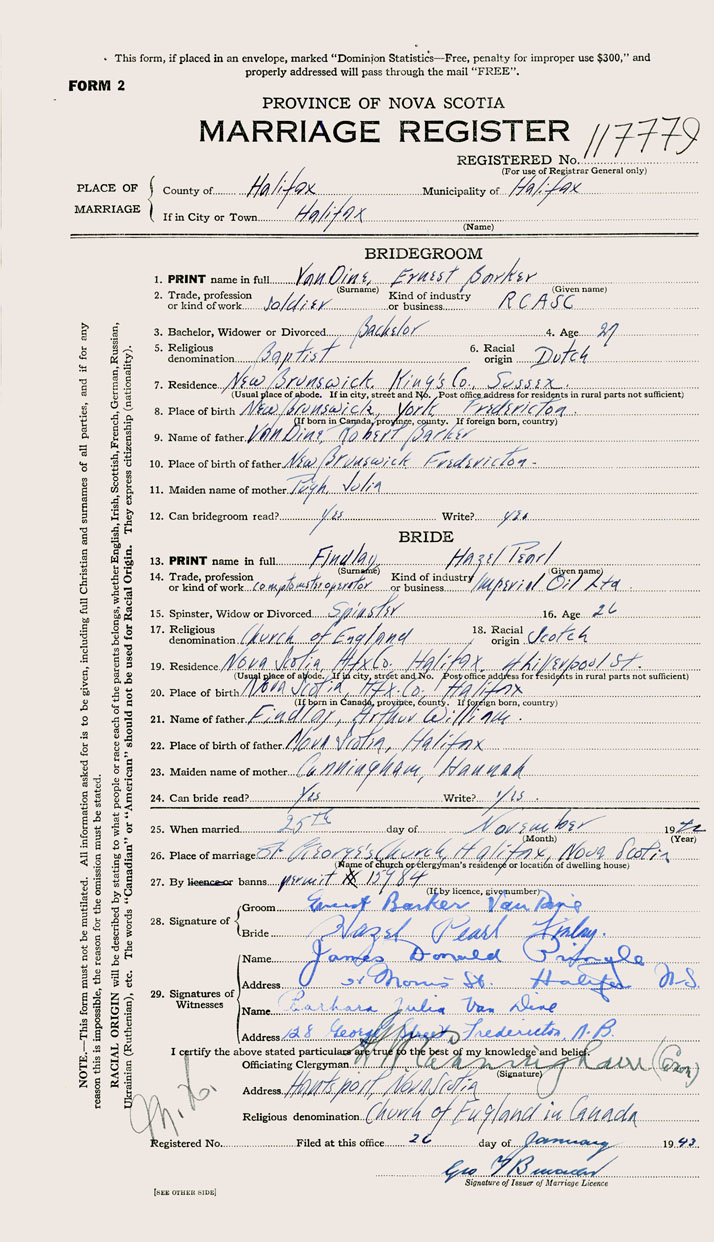 This form, if placed in an envelope, marked "Dominion Statistics—Free, penalty for improper use $300," and
properly addressed will pass through the mail "FREE".
FORM 2
PROVINCE OF NOVA SCOTIA
MARRIAGE REGISTER
117779
REGISTERED No.
(For use of Registrar General only)
PLACE OF MARRIAGE
County of Halifax Municipality of Halifax
If in City or Town Halifax
(Name)
BRIDEGROOM
1. PRINT name in full Van Dine, Ernest Barker
(Surname) (Given name)
2. Trade, profession or kind of work Soldier Kind of industry or business R C A S C
3. Bachelor, Widower or Divorced Bachelor 4. Age 27
5. Religious denomination Baptist 6. Racial origin Dutch
7. Residence New Brunswick, King's Co., Sussex.
(Usual place of abode. If in city, street and No. Post office address for residents in rural parts not sufficient)
8. Place of birth New Brunswick, York, Fredericton.
(If born in Canada, province, county. If foreign born, country)
9. Name of father Van Dine, Robert Barker
10. Place of birth of father New Brunswick Fredericton.
11. Maiden name of mother Pugh, Julia
12. Can bridegroom read? yes Write? yes
BRIDE
13. PRINT name in full Findlay Hazel Pearl
(Surname) (Given name)
14. Trade, profession or kind of work comptometer operator Kind of industry or business Imperial Oil Ltd.
15. Spinster, Widow or Divorced Spinster 16. Age 26
17. Religious denomination Church of England 18. Racial origin Scotch
19. Residence Nova Scotia, Hfx Co., Halifax, 4 Liverpool St.
(Usual place of abode. If in city, street and No. Post office address for residents in rural parts not sufficient)
20. Place of birth Nova Scotia, Hfx. Co., Halifax
(If born in Canada, province, county. If foreign born, country)
21. Name of father Findlay, Arthur William.
22. Place of birth of father Nova Scotia, Halifax
23. Maiden name of mother Cunningham, Hannah
24. Can bride read? Yes Write? yes.
25. When married 25th day of November 1942
(Month) (Year)
26. Place of marriage St George's Church, Halifax, Nova Scotia
(Name of church or clergyman's residence or location of dwelling house)
27. By licence or banns permit 15984
(If by licence, give number)
28. Signature of
Groom Ernest Barker Van Dine
Bride Hazel Pearl Finlay.
29. Signatures of Witnesses
Name James Donald Pringle
Address Morris St. Halifax N.S.
Name Barbara Julia Van Dine
Address 128 George Street Fredericton N.B.
I certify the above stated particulars are true to the best of my knowledge and belief.
Officiating Clergyman Cunningham
(Signature)
Address Hantsport, Nova Scotia
Religious denomination Church of England in Canada
Registered No. Filed at this office 26 day of January 1943
Signature of Issuer of Marriage Licence
[SEE OTHER SIDE]
NOTE.—This form must not be mutilated. All information asked for is to be given, including full Christian and surnames of all parties, and if for any
reason this is impossible, the reason for the omission must be stated.
RACIAL ORIGIN will be described by stating to what people or race each of the parents belongs, whether English, Irish, Scottish, French, German, Russian,
Ukrainian (Ruthenian), etc. The words "Canadian" or "American" should not be used for Racial Origin. They express citizenship (nationality).